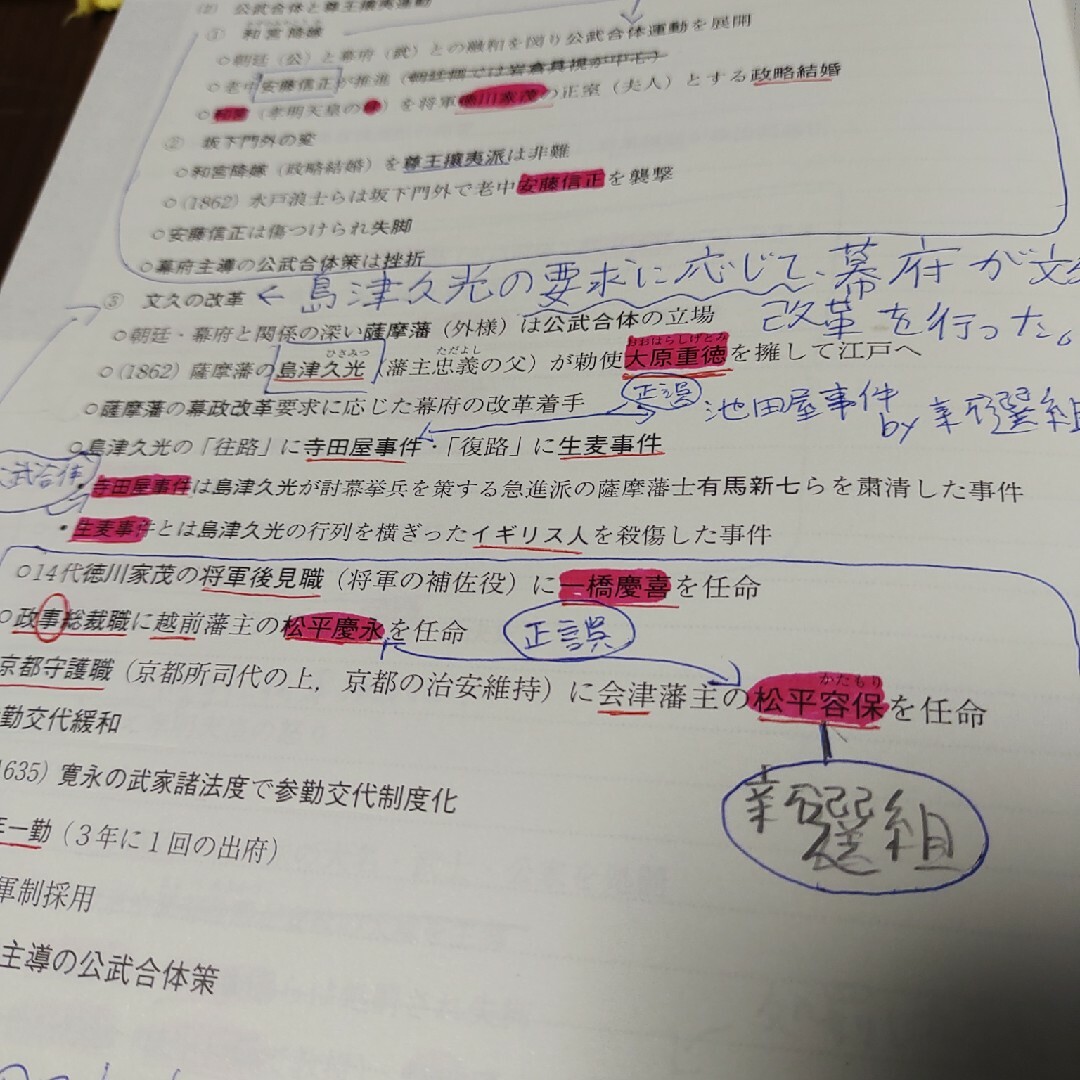 (2) 公武合体と尊王攘夷運動
① 和宮降嫁
○朝廷(公)と幕府(武)との融和を図り公武合体運動を展開
○老中安藤信正が推進(朝廷側では岩倉具視が中心)
○和宮(孝明天皇の妹)を将軍徳川家茂の正室(夫人)とする政略結婚
② 坂下門外の変
○和宮降嫁(政略結婚)を尊王攘夷派は非難
○(1862) 水戸浪士らは坂下門外で老中安藤信正を襲撃
○安藤信正は傷つけられ失脚
○幕府主導の公武合体策は挫折
③ 文久の改革 ← 島津久光の要求に応じて、幕府が文久
改革を行った。
○朝廷・幕府と関係の深い薩摩藩(外様)は公武合体の立場
ひさみつ ただよし おおはらしげとみ
○(1862) 薩摩藩の島津久光(藩主忠義の父)が勅使大原重徳を擁して江戸へ
○薩摩藩の幕政改革要求に応じた幕府の改革着手
正誤 池田屋事件
by 新選組
○島津久光の「往路」に寺田屋事件・「復路」に生麦事件
武合体
・寺田屋事件は島津久光が討幕挙兵を策する急進派の薩摩藩士有馬新七らを粛清した事件
・生麦事件とは島津久光の行列を横ぎったイギリス人を殺傷した事件
○14代徳川家茂の将軍後見職(将軍の補佐役)に一橋慶喜を任命
○政事総裁職に越前藩主の松平慶永を任命 正誤
かたもり
京都守護職(京都所司代の上，京都の治安維持)に会津藩主の松平容保を任命
勤交代緩和
新選組
1635) 寛永の武家諸法度で参勤交代制度化
年一勤(3年に1回の出府)
軍制採用
主導の公武合体策